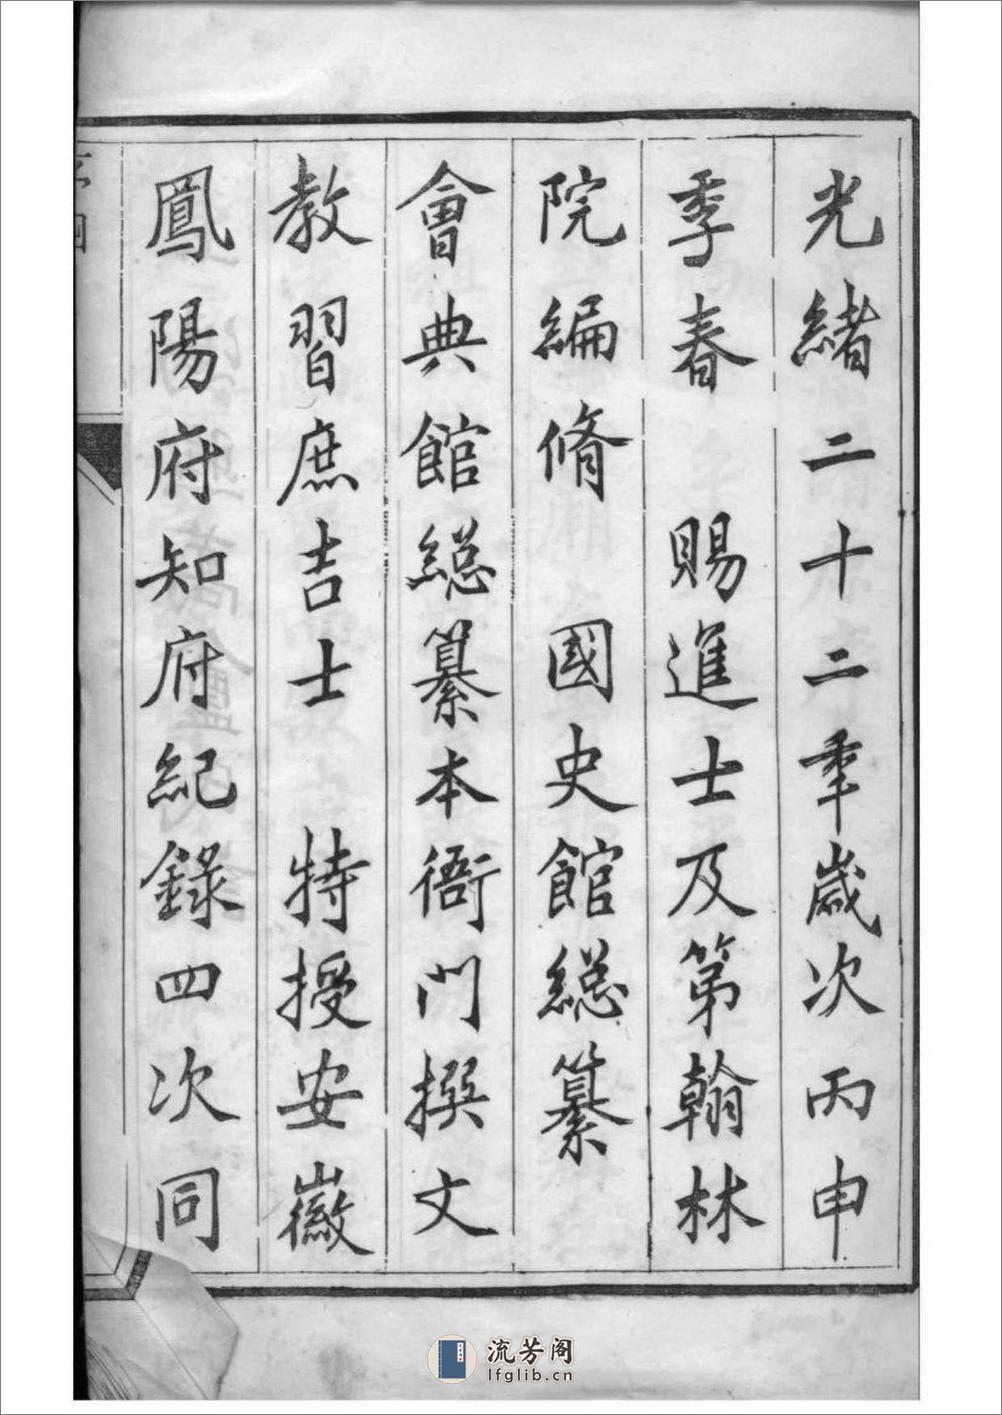 光緒二十二秊歲次丙申
季春　賜進士及第翰林
院編脩　國史館總纂
會典館總纂本衙門撰文
教習庶吉士　特授安徽
鳳陽府知府紀錄四次同
流芳阁
lfglib.cn